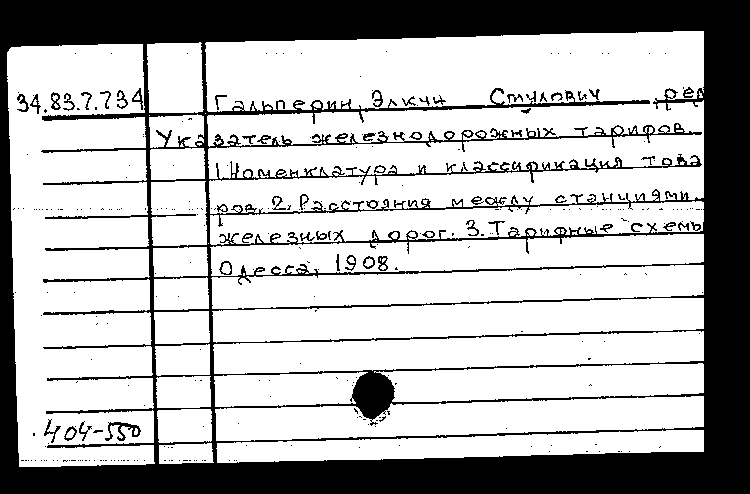 34.83.7.734 Гальперин, Элкун Смулович, ред
Указатель железнодорожных тарифов.
1.Номенклатура и классификация това
ров. 2. Расстояния между станциями
железных дорог. 3. Тарифные схемы
Одесса, 1908.
404-550